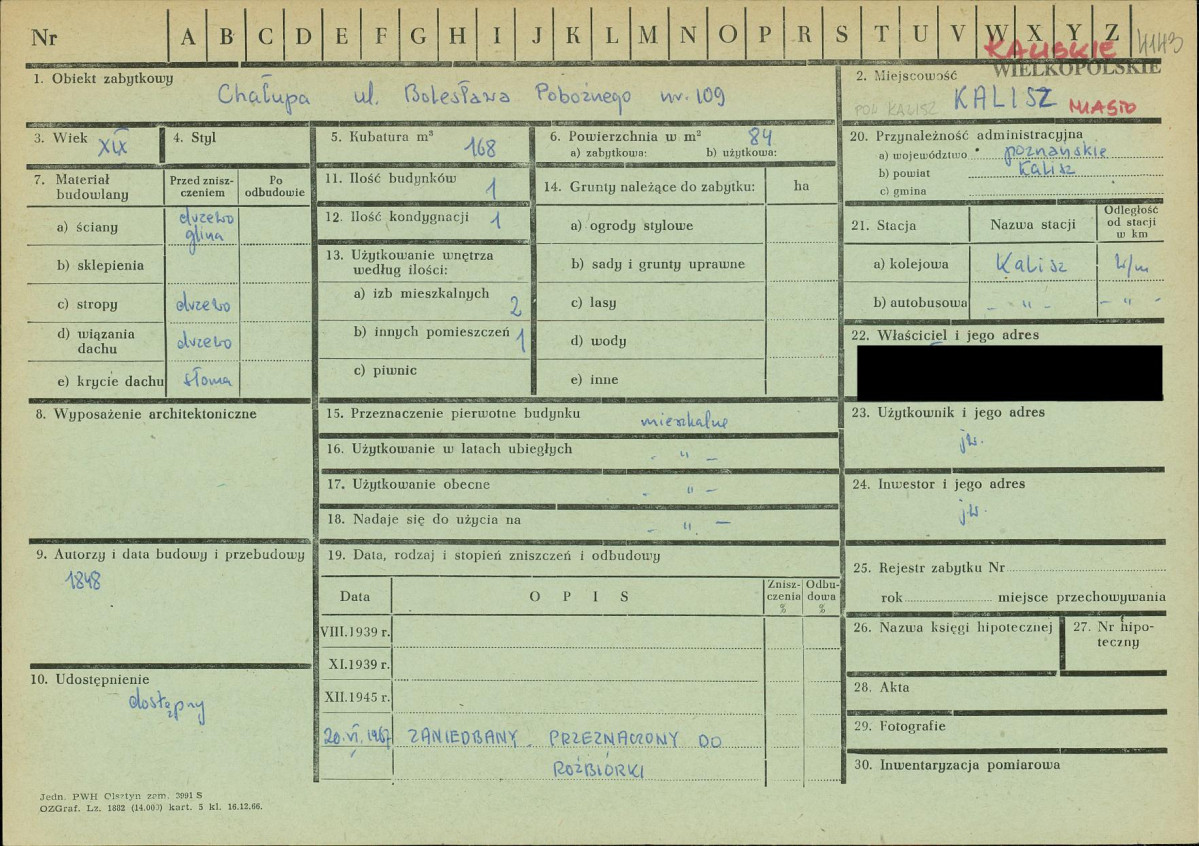 Nr A B C D E F G H I J K L M N O P R S T U V W X Y Z 4143
KALISKIE
WIELKOPOLSKIE
1. Obiekt zabytkowy
Chałupa ul. Bolesława Pobożnego nr. 109
2. Miejscowość
POW KALISZ KALISZ MIASTO
3. Wiek XIX
4. Styl
5. Kubatura m³ 168
6. Powierzchnia w m² 84
a) zabytkowa: b) użytkowa:
7. Materiał budowlany
Przed zniszczeniem
Po odbudowie
a) ściany drzewo glina
b) sklepienia
c) stropy drzewo
d) wiązania dachu drzewo
e) krycie dachu słoma
8. Wyposażenie architektoniczne
9. Autorzy i data budowy i przebudowy
1848
10. Udostępnienie
dostępny
11. Ilość budynków 1
12. Ilość kondygnacji 1
13. Użytkowanie wnętrza
według ilości:
a) izb mieszkalnych 2
b) innych pomieszczeń 1
c) piwnic
14. Grunty należące do zabytku: ha
a) ogrody stylowe
b) sady i grunty uprawne
c) lasy
d) wody
e) inne
15. Przeznaczenie pierwotne budynku mieszkalne
16. Użytkowanie w latach ubiegłych - " -
17. Użytkowanie obecne - " -
18. Nadaje się do użycia na - " -
19. Data, rodzaj i stopień zniszczeń i odbudowy
Data OPIS Zniszczenia % Odbudowa %
VIII.1939 r.
XI.1939 r.
XII.1945 r.
20.VI.1967 ZANIEDBANY. PRZEZNACZONY DO
ROZBIÓRKI
20. Przynależność administracyjna
a) województwo poznańskie
b) powiat Kalisz
c) gmina
21. Stacja Nazwa stacji Odległość od stacji w km
a) kolejowa Kalisz w/m
b) autobusowa - " - - " -
22. Właściciel i jego adres
23. Użytkownik i jego adres
jw.
24. Inwestor i jego adres
jw.
25. Rejestr zabytku Nr
rok miejsce przechowywania
26. Nazwa księgi hipotecznej
27. Nr hipoteczny
28. Akta
29. Fotografie
30. Inwentaryzacja pomiarowa
Jedn. PWH Olsztyn zam. 3991 S
OZGraf. Lz. 1882 (14.000) kart. 5 kl. 16.12.66.